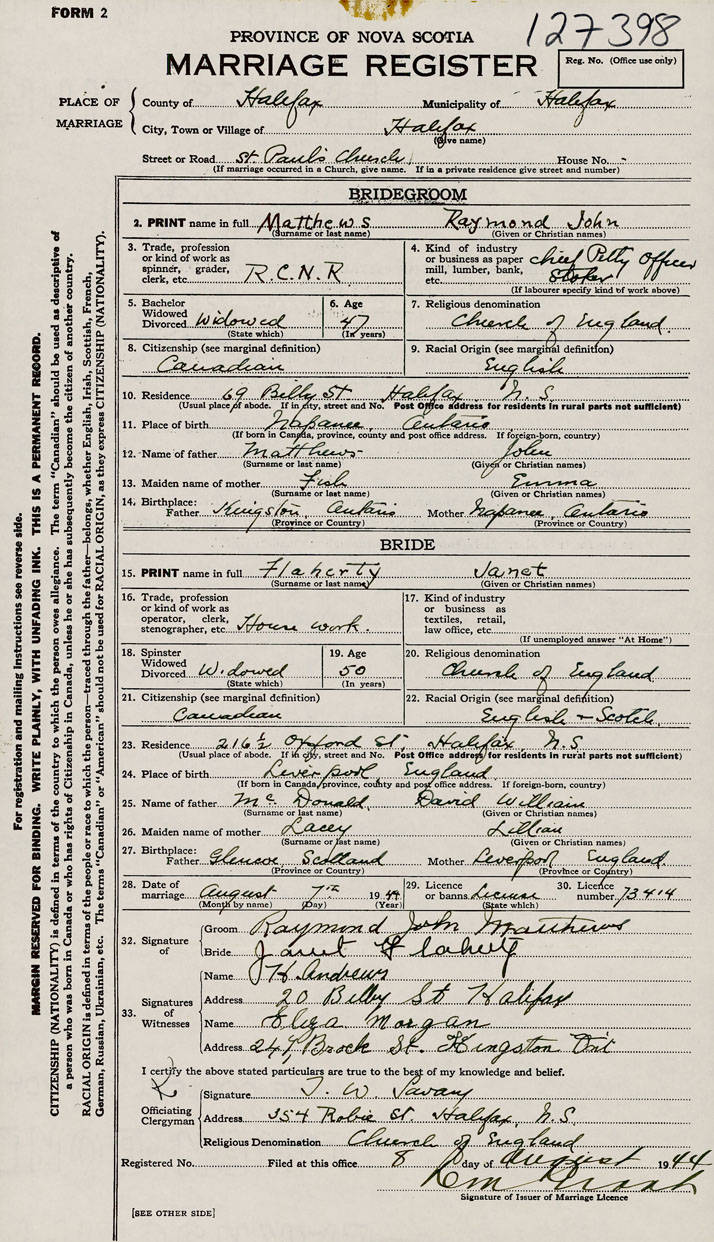 FORM 2
127398
PROVINCE OF NOVA SCOTIA
MARRIAGE REGISTER
Reg. No. (Office use only)
PLACE OF MARRIAGE
County of Halifax Municipality of Halifax
City, Town or Village of Halifax
(Give name)
Street or Road St. Paul's Church House No. -
(If marriage occurred in a Church, give name. If in a private residence give street and number)
BRIDEGROOM
2. PRINT name in full Matthews Raymond John
(Surname or last name) (Given or Christian names)
3. Trade, profession or kind of work as spinner, grader, clerk, etc. R.C.N.R
4. Kind of industry or business as paper mill, lumber, bank, etc. Chief Petty Officer Stoker
(If labourer specify kind of work above)
5. Bachelor Widowed Divorced Widowed
(State which)
6. Age 47
(In years)
7. Religious denomination
Church of England
8. Citizenship (see marginal definition)
Canadian
9. Racial Origin (see marginal definition)
English
10. Residence 69 Bilby St Halifax N.S.
(Usual place of abode. If in city, street and No. Post Office address for residents in rural parts not sufficient)
11. Place of birth Napanee, Ontario
(If born in Canada, province, county and post office address. If foreign-born, country)
12. Name of father Matthews John
(Surname or last name) (Given or Christian names)
13. Maiden name of mother Fish Emma
(Surname or last name) (Given or Christian names)
14. Birthplace: Father Kingston, Ontario Mother Napanee, Ontario
(Province or Country) (Province or Country)
BRIDE
15. PRINT name in full Flaherty Janet
(Surname or last name) (Given or Christian names)
16. Trade, profession or kind of work as operator, clerk, stenographer, etc. House work.
17. Kind of industry or business as textiles, retail, law office, etc.
(If unemployed answer "At Home")
18. Spinster Widowed Divorced Widowed
(State which)
19. Age 50
(In years)
20. Religious denomination
Church of England
21. Citizenship (see marginal definition)
Canadian
22. Racial Origin (see marginal definition)
English + Scotch
23. Residence 216½ Oxford St. Halifax, N.S.
(Usual place of abode. If in city, street and No. Post Office address for residents in rural parts not sufficient)
24. Place of birth Liverpool, England
(If born in Canada, province, county and post office address. If foreign-born, country)
25. Name of father McDonald David William
(Surname or last name) (Given or Christian names)
26. Maiden name of mother Lacey Lillian
(Surname or last name) (Given or Christian names)
27. Birthplace: Father Glencoe, Scotland Mother Liverpool England
(Province or Country) (Province or Country)
28. Date of marriage August 7th 1944
(Month by name) (Day) (Year)
29. Licence or banns License
(State which)
30. Licence number 73414
32. Signature of
Groom Raymond John Matthews
Bride Janet Flaherty
33. Signatures of Witnesses
Name H. Andrews
Address 20 Bilby St Halifax
Name Eliza Morgan
Address 249 Brock St. Kingston Ont
I certify the above stated particulars are true to the best of my knowledge and belief.
Officiating Clergyman
Signature T. W. Savary
Address 354 Robie St. Halifax, N.S.
Religious Denomination Church of England
Registered No. Filed at this office 8 day of August 1944
Signature of Issuer of Marriage Licence
[SEE OTHER SIDE]
For registration and mailing instructions see reverse side.
MARGIN RESERVED FOR BINDING. WRITE PLAINLY, WITH UNFADING INK. THIS IS A PERMANENT RECORD.
CITIZENSHIP (NATIONALITY) is defined in terms of the country to which the person owes allegiance. The term "Canadian" should be used as descriptive of
a person who was born in Canada or who has rights of Citizenship in Canada, unless he or she has subsequently become the citizen of another country.
RACIAL ORIGIN is defined in terms of the people or race to which the person—traced through the father—belongs, whether English, Irish, Scottish, French,
German, Russian, Ukrainian, etc. The terms "Canadian" or "American" should not be used for RACIAL ORIGIN, as they express CITIZENSHIP (NATIONALITY).